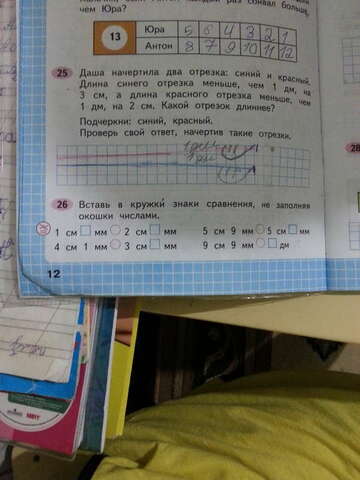 чем Юра?
13 Юра 5 6 4 3 2 1
Антон 8 7 9 10 11 12
25 Даша начертила два отрезка: синий и красный.
Длина синего отрезка меньше, чем 1 дм, на
3 см, а длина красного отрезка меньше, чем
1 дм, на 2 см. Какой отрезок длиннее?
Подчеркни: синий, красный.
Проверь свой ответ, начертив такие отрезки.
26 Вставь в кружки знаки сравнения, не заполняя
окошки числами.
1 см □ мм ○ 2 см □ мм 5 см 9 мм ○ 5 см □ мм
4 см 1 мм ○ 3 см □ мм 9 см 9 мм ○ □ дм
12
28